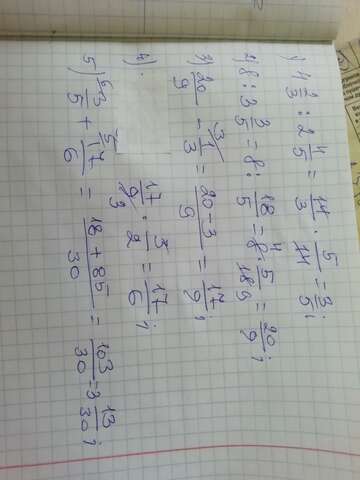 1) 4 2/3 : 2 4/5 = 14/3 · 5/14 = 3/5;
2) 8 : 3 3/5 = 8 : 18/5 = 8 4 · 5/18 9 = 20/9;
3) 20/9 - 3/ 1/3 = 20-3/9 = 17/9;
4) 17/9 3 · 3/2 = 17/6;
5) 6/ 3/5 + 5/ 17/6 = 18+85/30 = 103/30 = 3 13/30;